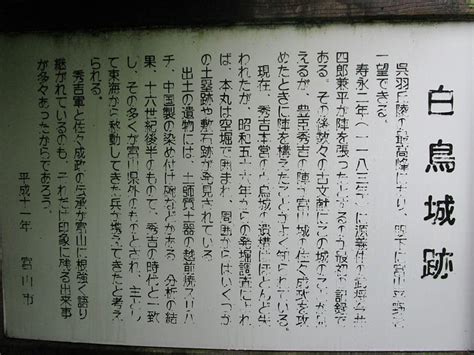 白鳥城跡
呉羽丘陵の最高峰にあり、眼下に富山平野を
一望できる。
寿永二年(一一八三年)に源義仲の武将今井
四郎兼平が陣を張ったとあるのが最初の記録で
ある。その後数々の古文献にこの城の
えるが、豊臣秀吉の陣が富山城の佐々成政を攻
めたときに陣を構えたことがよく知られている。
現在、秀吉本営の白鳥城の遺構はほとんど失
われたが、昭和五十六年からの発掘調査によれ
ば、本丸は空堀で囲まれ、周囲からはいくつか
の土塁跡や敷石跡が発見されている。
出土の遺物には、土師質土器の越前焼スリバ
チ、中国製の染め付け碗などがある。分析の結
果、十六世紀後半のもので、秀吉の時代と一致
し、その多くが富山県外のものとされ、主に
て東海から移動してきた兵が携えてきたと考え
られる。
秀吉軍と佐々成政の伝承が富山に根強く語り
継がれているのも、それだけ印象に残る出来事
が多々あったからであろう。
平成十一年 富山市